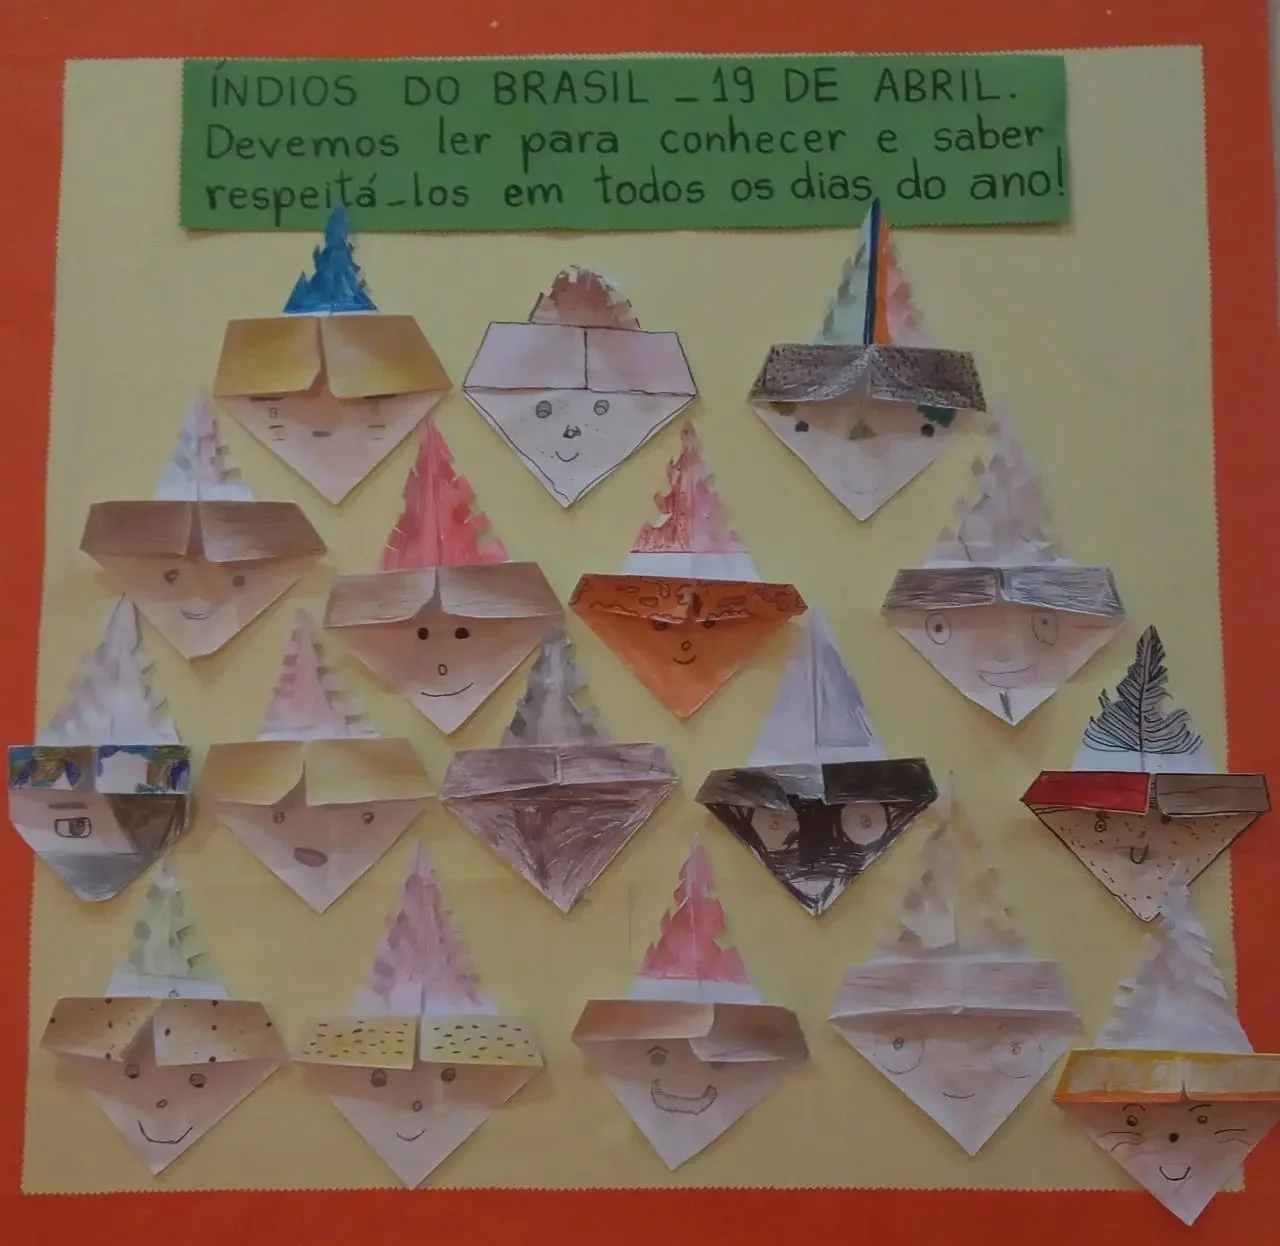 ÍNDIOS DO BRASIL _ 19 DE ABRIL.
Devemos ler para conhecer e saber
respeitá_los em todos os dias do ano!